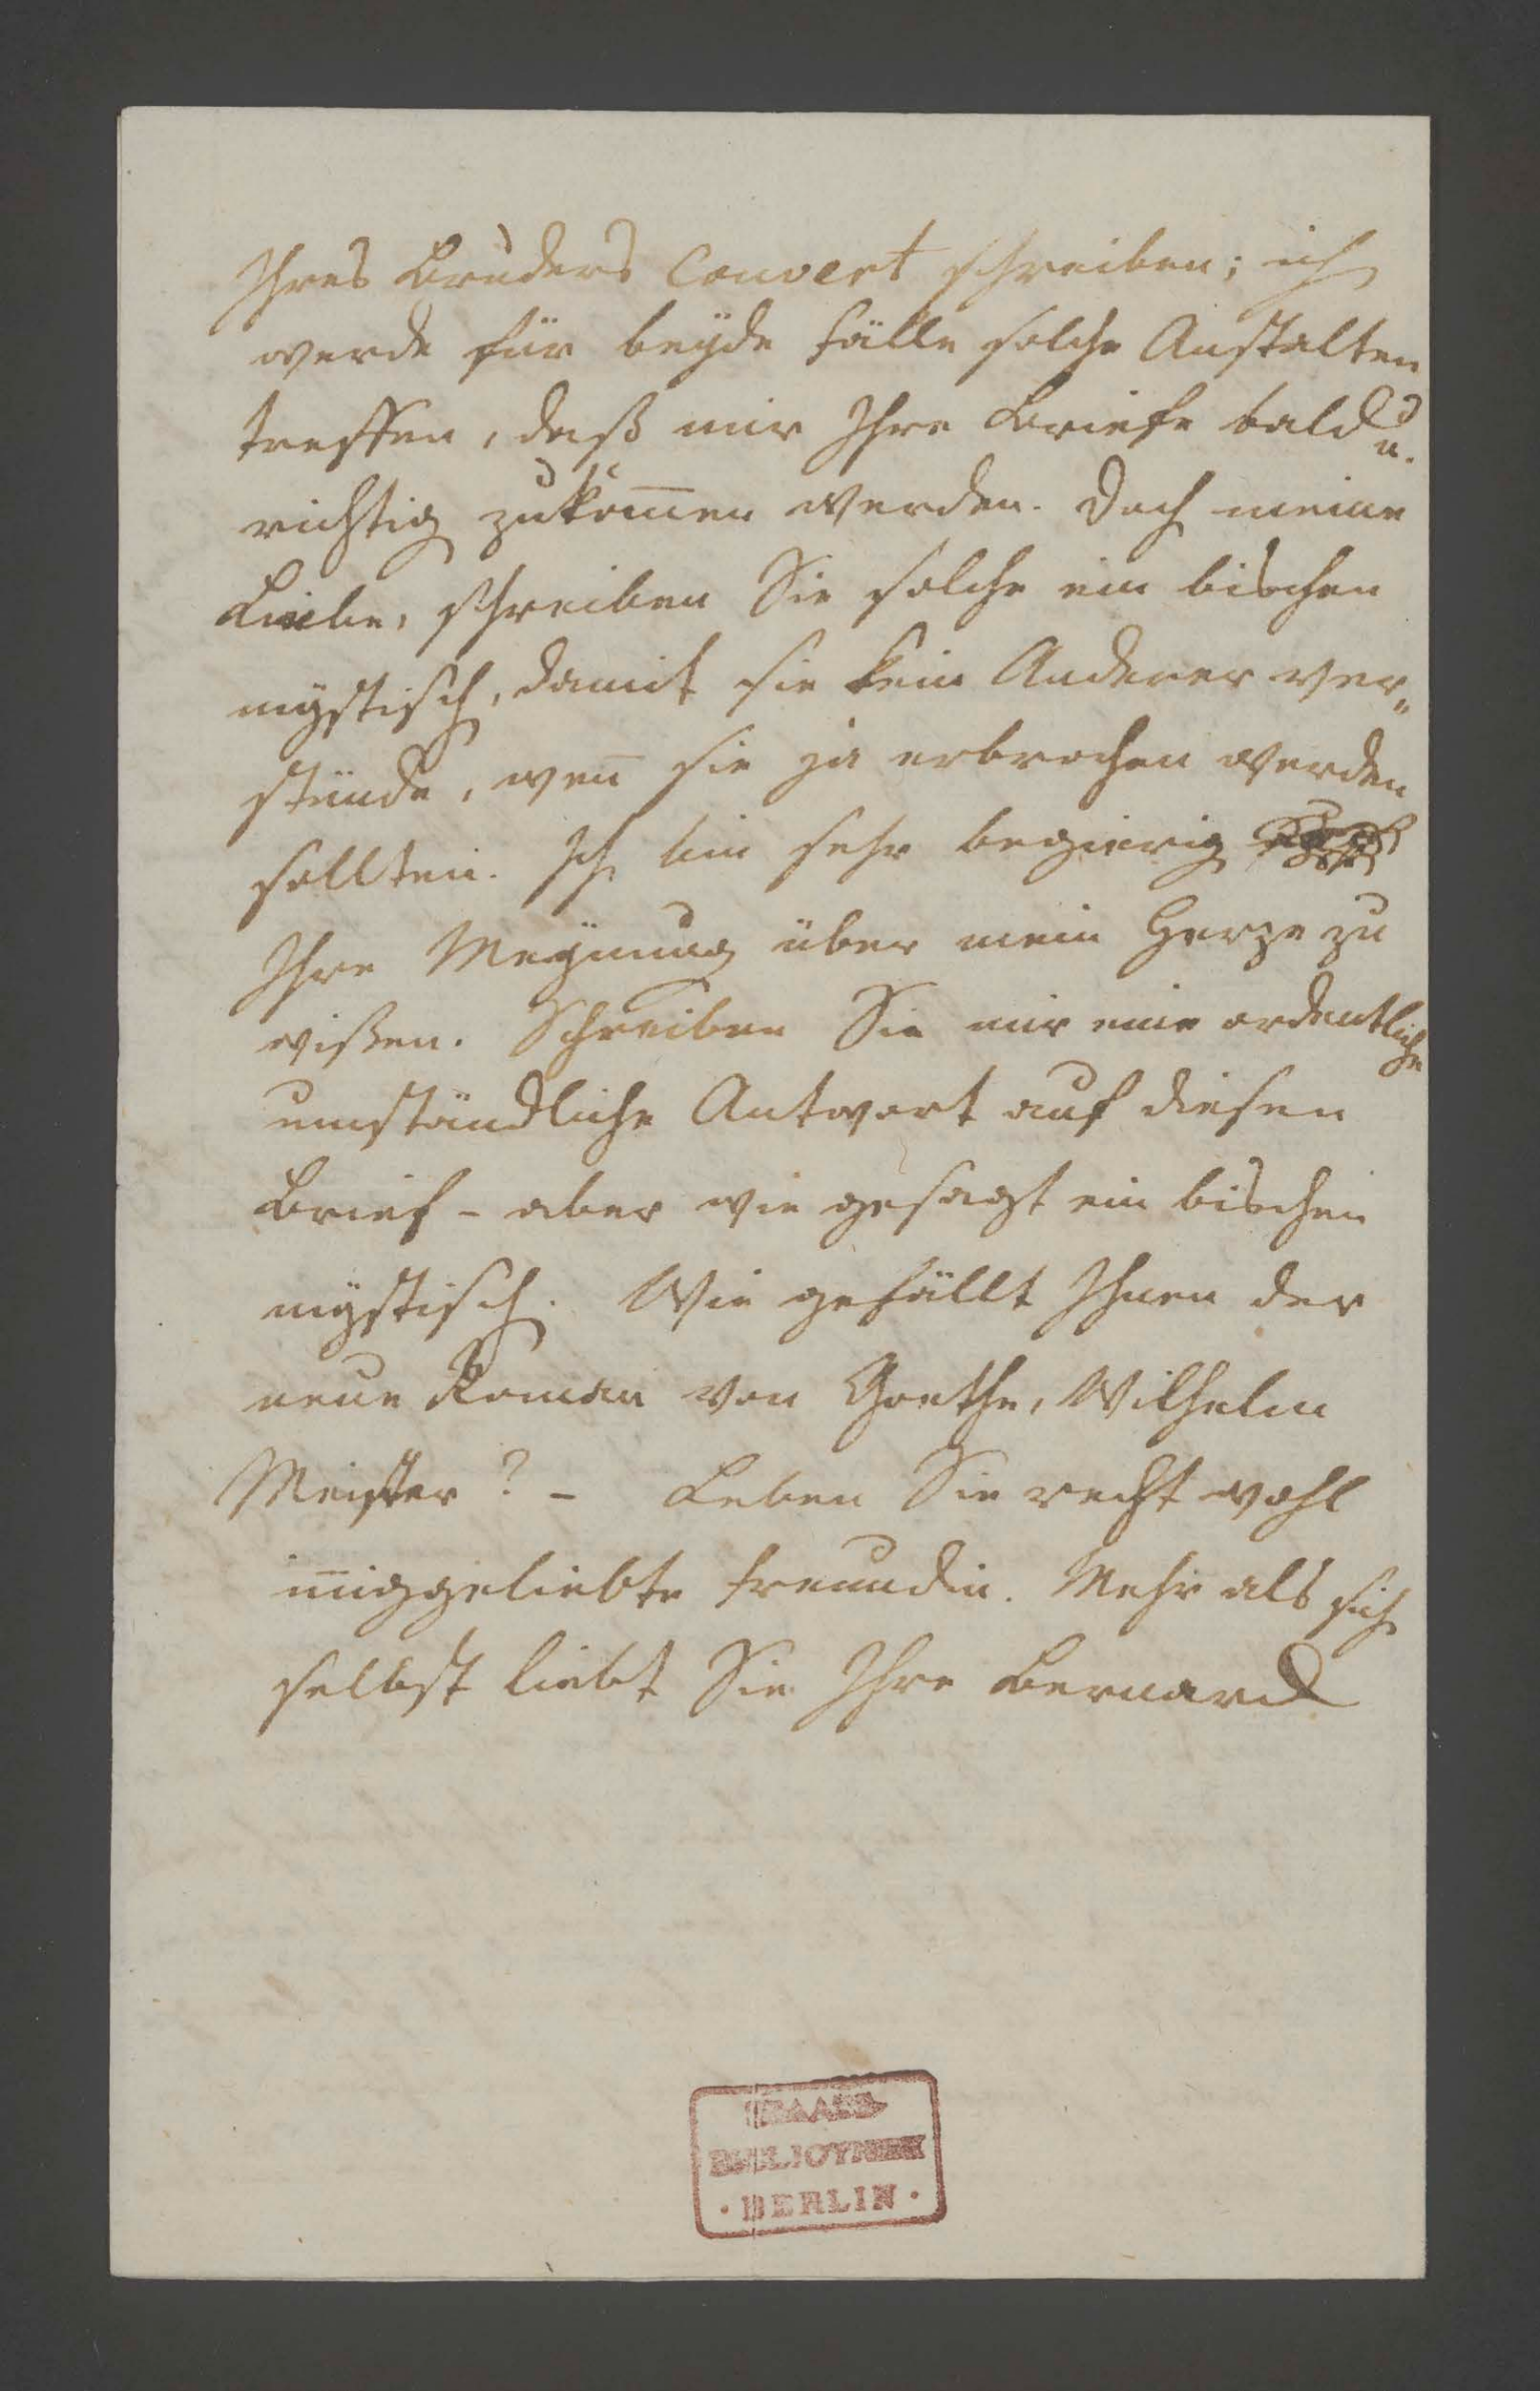 Ihres Bruders Couvert schreiben; ich
werde für beyde Fälle solche Anstalten
treffen, daß mir Ihre Briefe bald u.
richtig zukom̅en werden. Doch meine
Liebe, schreiben Sie solche ein bischen
mystisch, damit sie kein Anderer ver„
stünde, wen̅ sie ja erbrochen werden
sollten. Ich bin sehr begierig
Ihre Meynung über mein Herze zu
wißen. Schreiben Sie mir eine ordentliche
umständliche Antwort auf diesen
Brief – aber wie gesagt ein bischen
mystisch. Wie gefällt Ihnen der
neue Roman von Goethe, Wilhelm
Meister? – Leben Sie recht wohl
in̅iggeliebte Freundin. Mehr als sich
selbst liebt Sie Ihre Bernard
STAATS
BIBLIOTHEK
· BERLIN ·